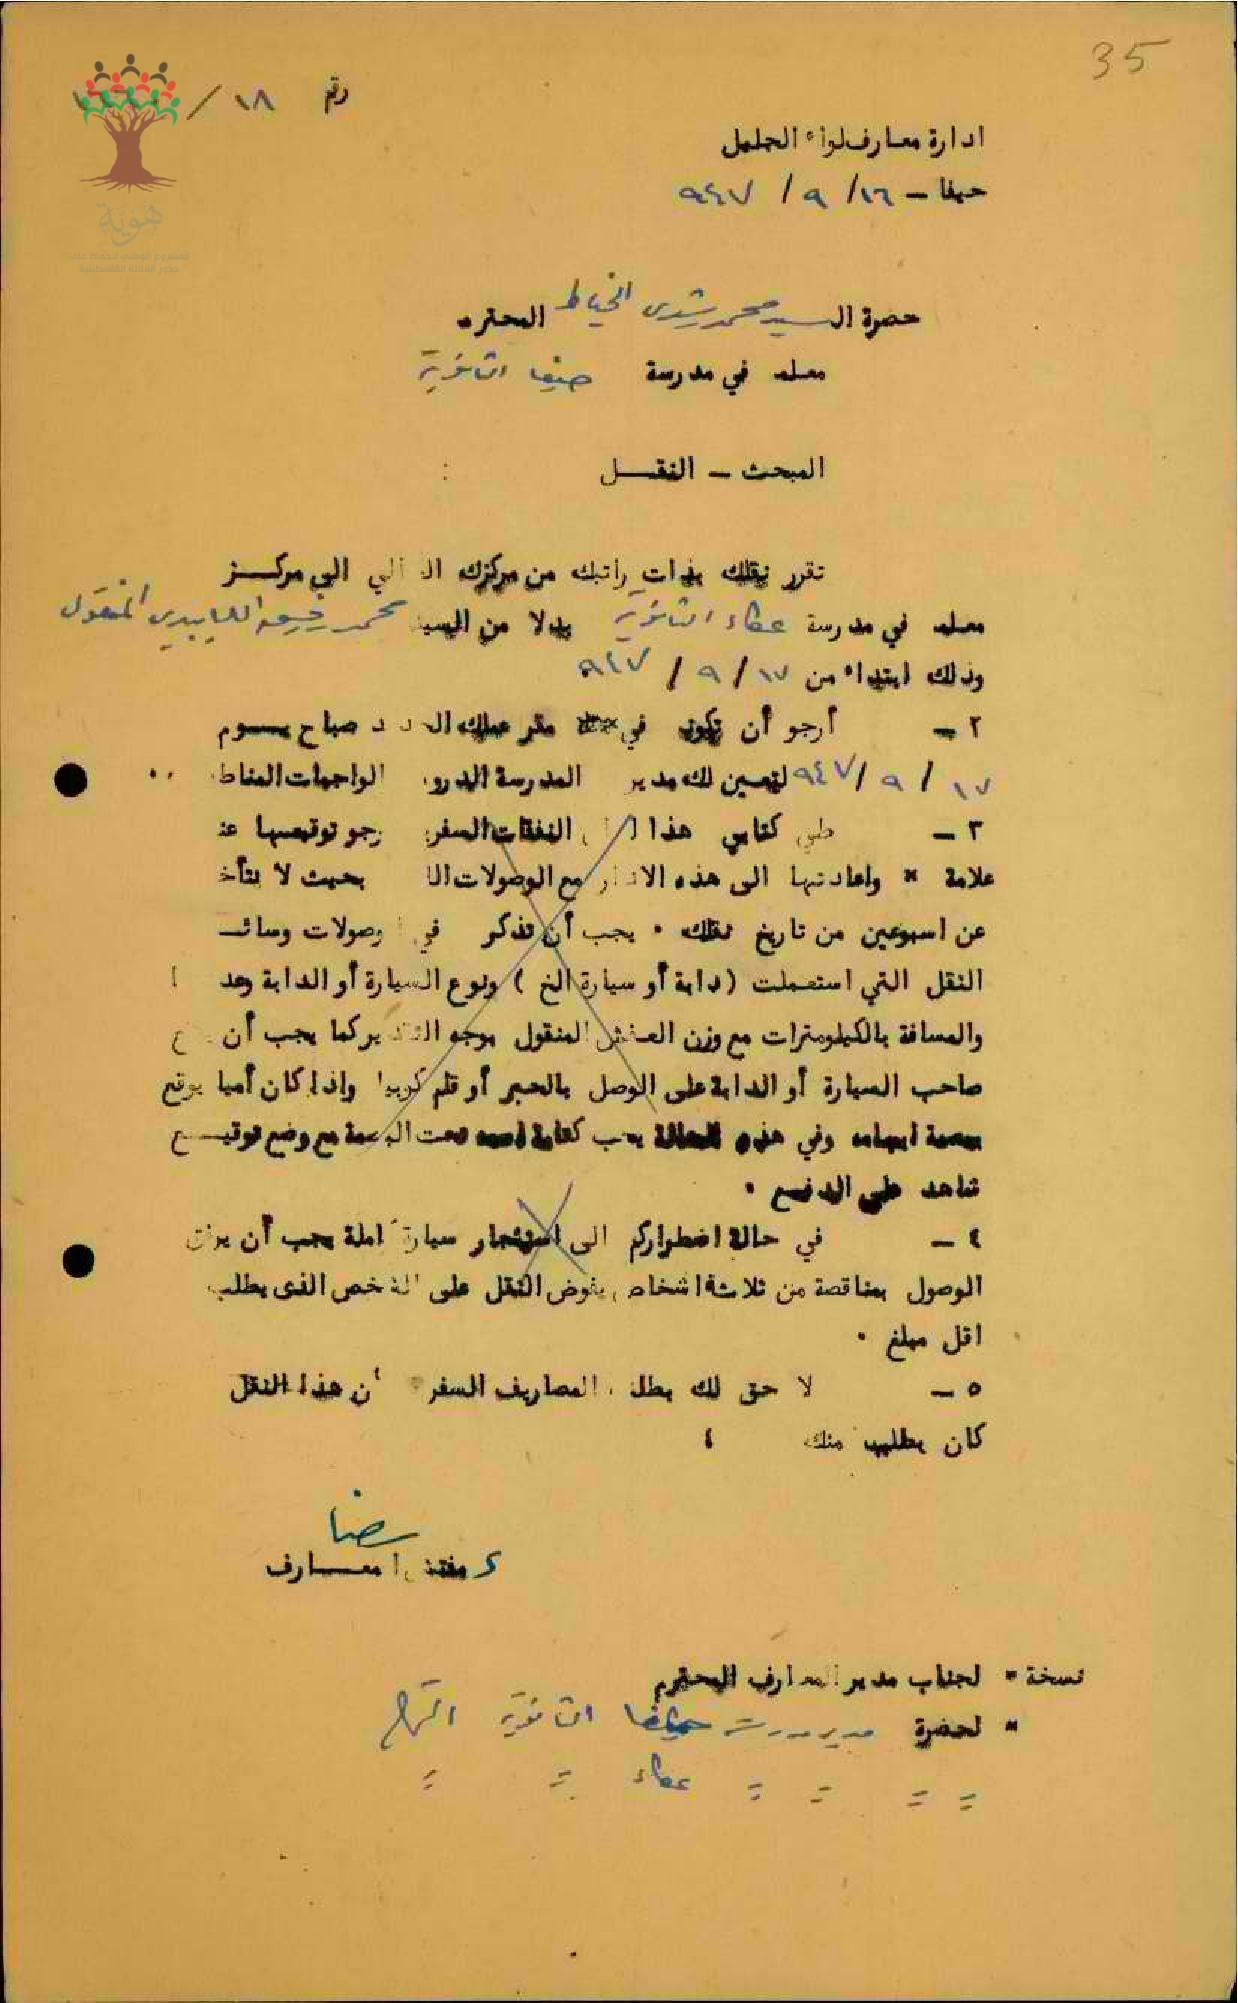 35
رقم ١٨ /
هوية
المشروع الوطني للحفاظ على
جذور العائلة الفلسطينية
ادارة معارف لواء الجليل
حيفا - ١٦/ ٩ / ٩٤٧
حضرة السيد محمد رشدي الخياط المحترم
معلم في مدرسة حيفا الثانوية
المبحث - النقل :
تقرر نقلك بذات راتبك من مركزك الى مركز
معلم في مدرسة عكاء الثانوية بدلا من السيد محمد رفيق اللبابيدي المنقول
وذلك ابتداء من ١٧ / ٩ / ٩٤٧
٢ - أرجو أن تكون في مقر عملك صباح يوم
١٧ / ٩ / ٩٤٧ ليعين لك مدير المدرسة الواجبات المناط
٣ - طي كتابي هذا النفقات السفر رجو توقيعها
علامة × واعادتها الى هذه مع الوصولات بحيث لا
عن اسبوعين من تاريخ نقلك . يجب أن تذكر في وصولات
النقل التي استعملت (دابة أو سيارة الخ) ونوع السيارة أو الدابة
والمسافة بالكيلومترات مع وزن العفش المنقول بوجه كما يجب أن
صاحب السيارة أو الدابة على الوصل بالحبر أو قلم كوبيا واذا كان أميا يوقع
بصمة ابهامه وفي هذه الحالة يجب كتابة اسمه تحت البصمة مع وضع توقيع
شاهد على الدفع .
٤ - في حالة اضطراركم الى استئجار سيارة يجب أن يرفق
الوصول بمناقصة من ثلاثة اشخاص يفوض النقل على الشخص الذى يطلب
اقل مبلغ .
٥ - لا حق لك المصاريف السفر هذا النقل
كان بطلب منك
رضا
مفتش معارف
نسخة * لجناب مدير المعارف المحترم
* لحضرة مدير مدرسة حيفا الثانوية
= = = = عكاء = =